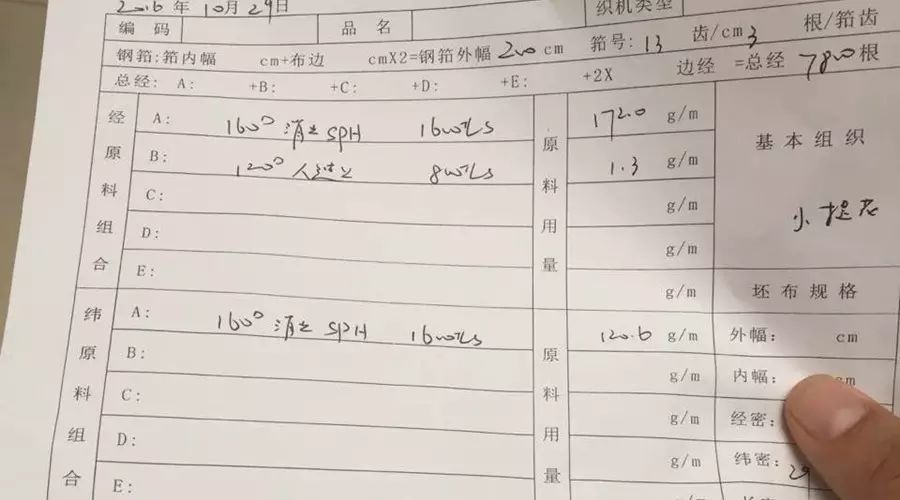 2016 年 10月 29日
编 码 品 名 织机类型
钢筘:筘内幅 cm+布边 cmX2=钢筘外幅 200 cm 筘号: 13 齿/cm 3 根/筘齿
总经: A: +B: +C: +D: +E: +2X 边经 =总经 7800 根
经原料组合 A: 160D 消光 SPH 160T/S 原料用量 172.0 g/m 基本组织
B: 120D 人造丝 80T/S 1.3 g/m
C: g/m 小提花
D: g/m
E: g/m 坯布规格
纬原料组合 A: 160D 消光 SPH 160T/S 原料用量 120.6 g/m 外幅: cm
B: g/m 内幅: cm
C: g/m 经密:
D: g/m 纬密: 29
E: